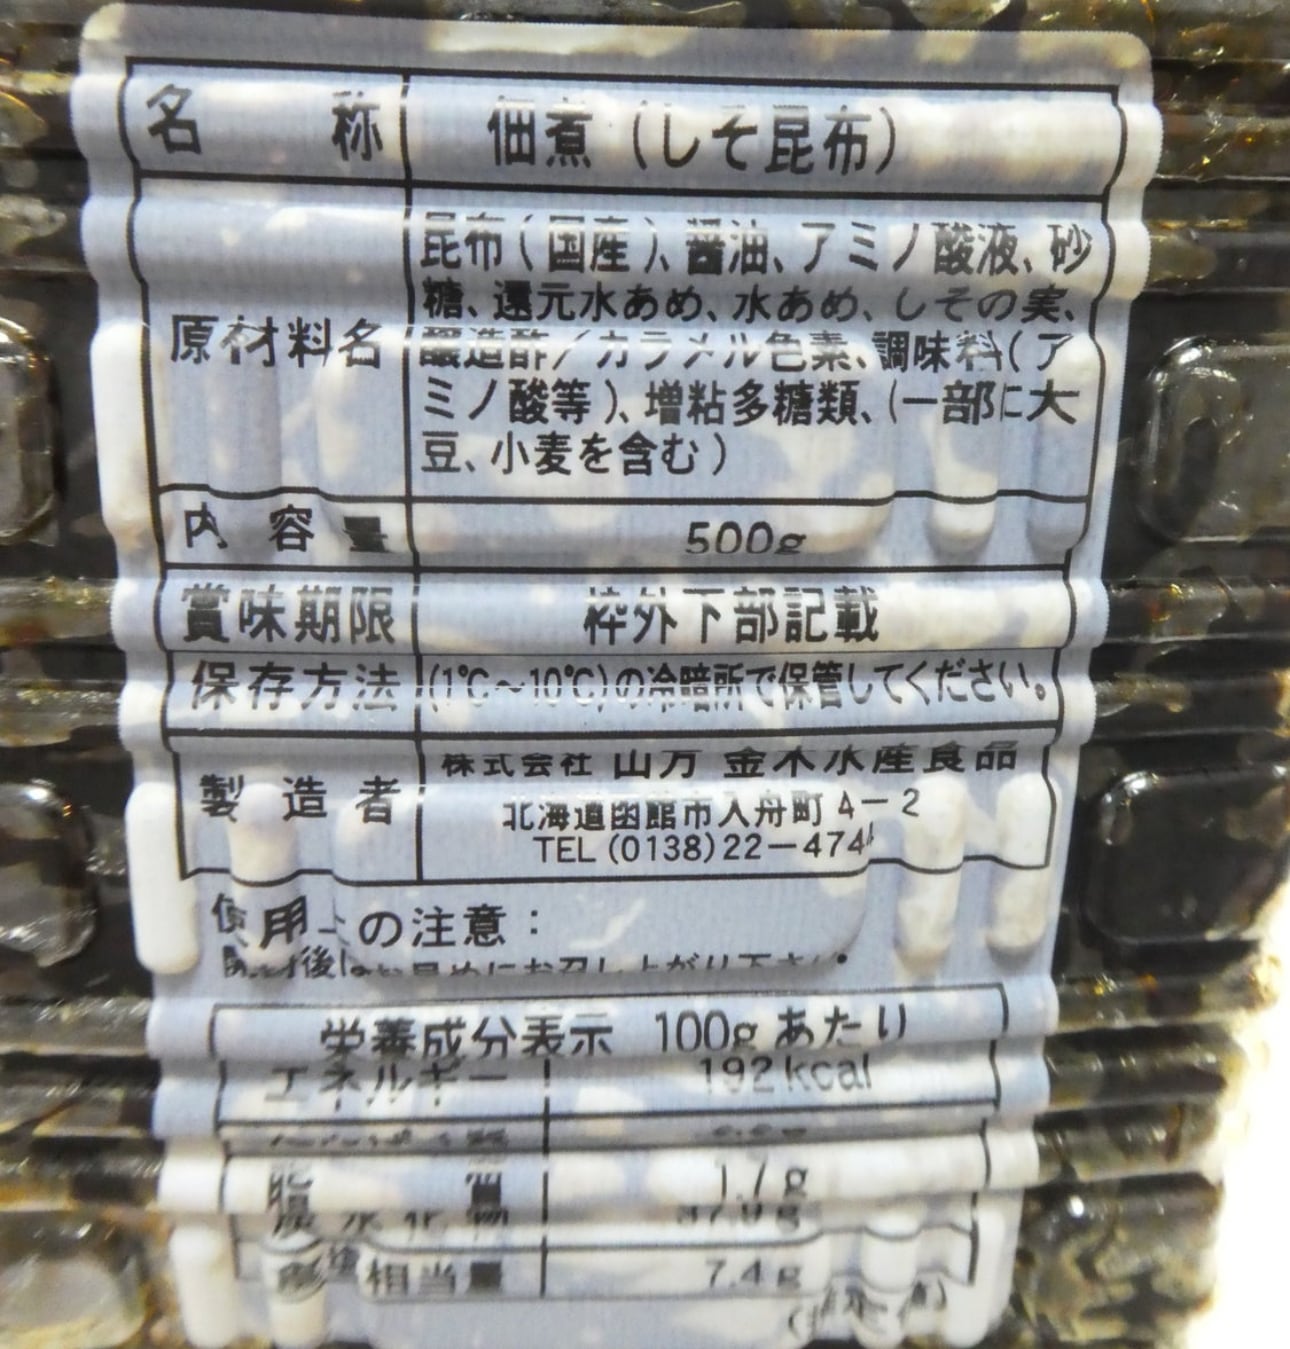 名称 佃煮(しそ昆布)
原材料名 昆布(国産)、醤油、アミノ酸液、砂
糖、還元水あめ、水あめ、しその実、
醸造酢/カラメル色素、調味料(ア
ミノ酸等)、増粘多糖類、(一部に大
豆、小麦を含む)
内容量 500g
賞味期限 枠外下部記載
保存方法 (1℃~10℃)の冷暗所で保管してください。
製造者 株式会社 山万 金木水産食品
北海道函館市入舟町4-2
TEL(0138)22-474
使用上の注意:
お早めにお召し上がり下さい。
栄養成分表示 100gあたり
エネルギー 192kcal
脂質 1.7g
炭水化物
相当量 7.4g